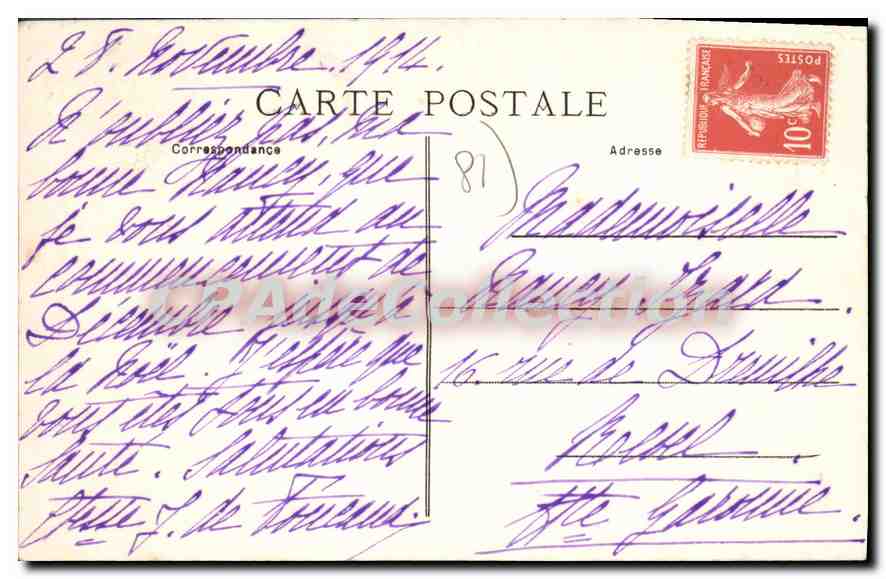 28. Novembre. 1914.
CARTE POSTALE
Correspondance
N'oubliez pas, ma
bonne Nancy, que
je vous attend au
commencement de
Décembre
la Noël. J'espère que
vous êtes tous en bonne
Santé. Salutations
Ctesse J. de Foucaud.
81
Adresse
RÉPUBLIQUE FRANÇAISE
POSTES
10c
Mademoiselle
Nancy Izard.
16. rue de Dreuilhe
Revel.
Hte Garonne.
CPAdeCollection